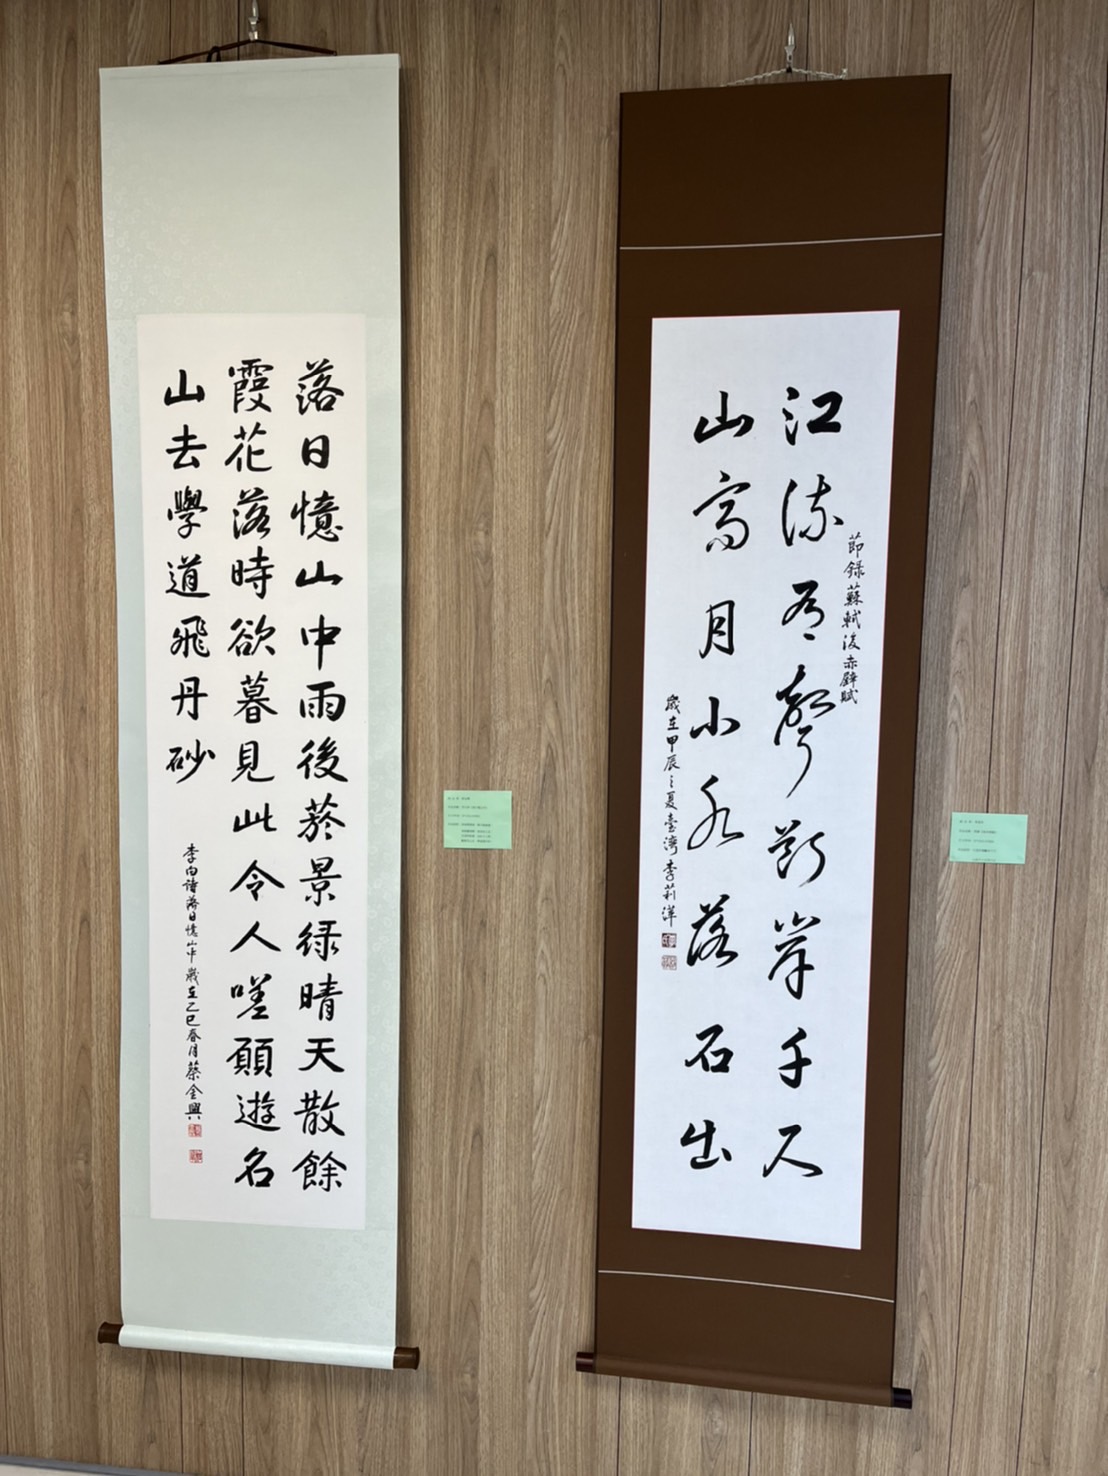 節錄蘇軾後赤壁賦
江流有聲斷岸千尺
山高月小水落石出
歲在甲辰之夏臺灣李莉洋
落日憶山中雨後菸景綠晴天散餘
霞花落時欲暮見此令人嗟願遊名
山去學道飛丹砂
李白詩落日憶山中歲在乙巳春月蔡金興